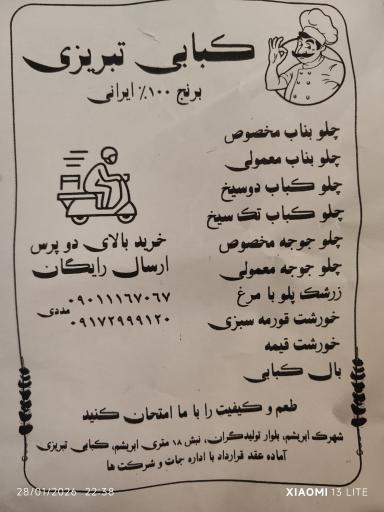 کبابی تبریزی
برنج ۱۰۰٪ ایرانی
چلو بناب مخصوص
چلو بناب معمولی
چلو کباب دوسیخ
چلو کباب تک سیخ
چلو جوجه مخصوص
چلو جوجه معمولی
زرشک پلو با مرغ
خورشت قورمه سبزی
خورشت قیمه
بال کبابی
خرید بالای دو پرس
ارسال رایگان
۰۹۰۱۱۱۶۷۰۶۷
مددی
۰۹۱۷۲۹۹۹۱۲۰
طعم و کیفیت را با ما امتحان کنید
شهرک ابریشم، بلوار تولیدگران، نبش ۱۸ متری ابریشم، کبابی تبریزی
آماده عقد قرارداد با اداره جات و شرکت ها
28/01/2026 22:38
XIAOMI 13 LITE